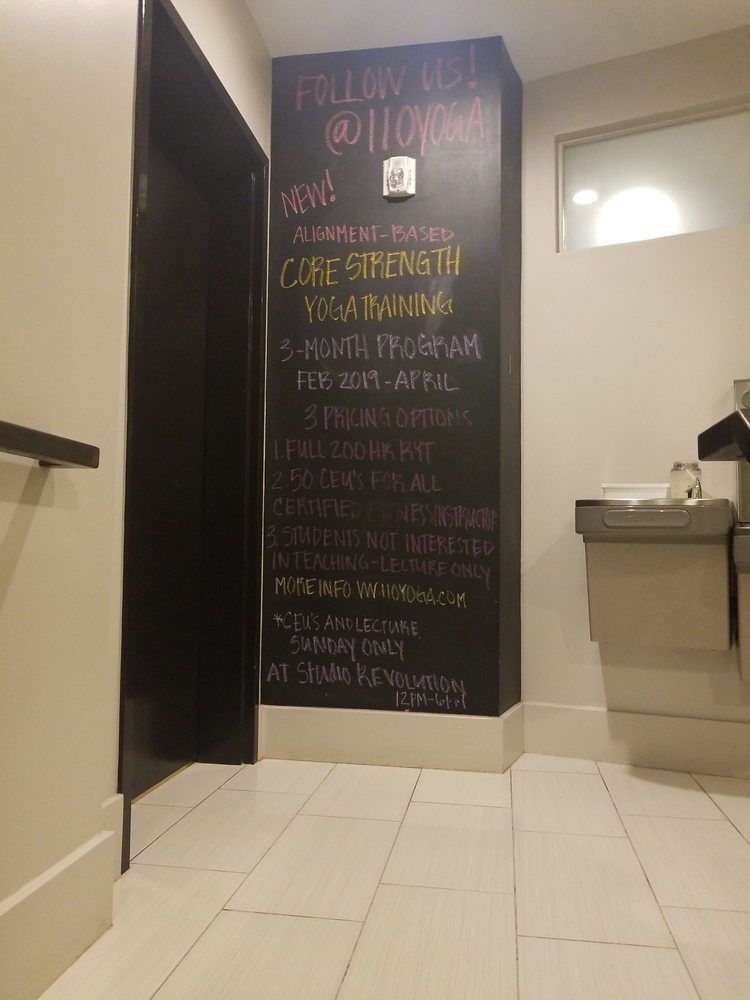 FOLLOW US!
@110YOGA
NEW!
ALIGNMENT-BASED
CORE STRENGTH
YOGA TRAINING
3-MONTH PROGRAM
FEB 2019-APRIL
3 PRICING OPTIONS
1. FULL 200 HR RYT
2. 50 CEU'S FOR ALL
CERTIFIED FITNESS INSTRUCTOR
3. STUDENTS NOT INTERESTED
IN TEACHING-LECTURE ONLY
MORE INFO WW.110YOGA.COM
*CEU'S AND LECTURE
SUNDAY ONLY
AT STUDIO REVOLUTION
12PM-6PM